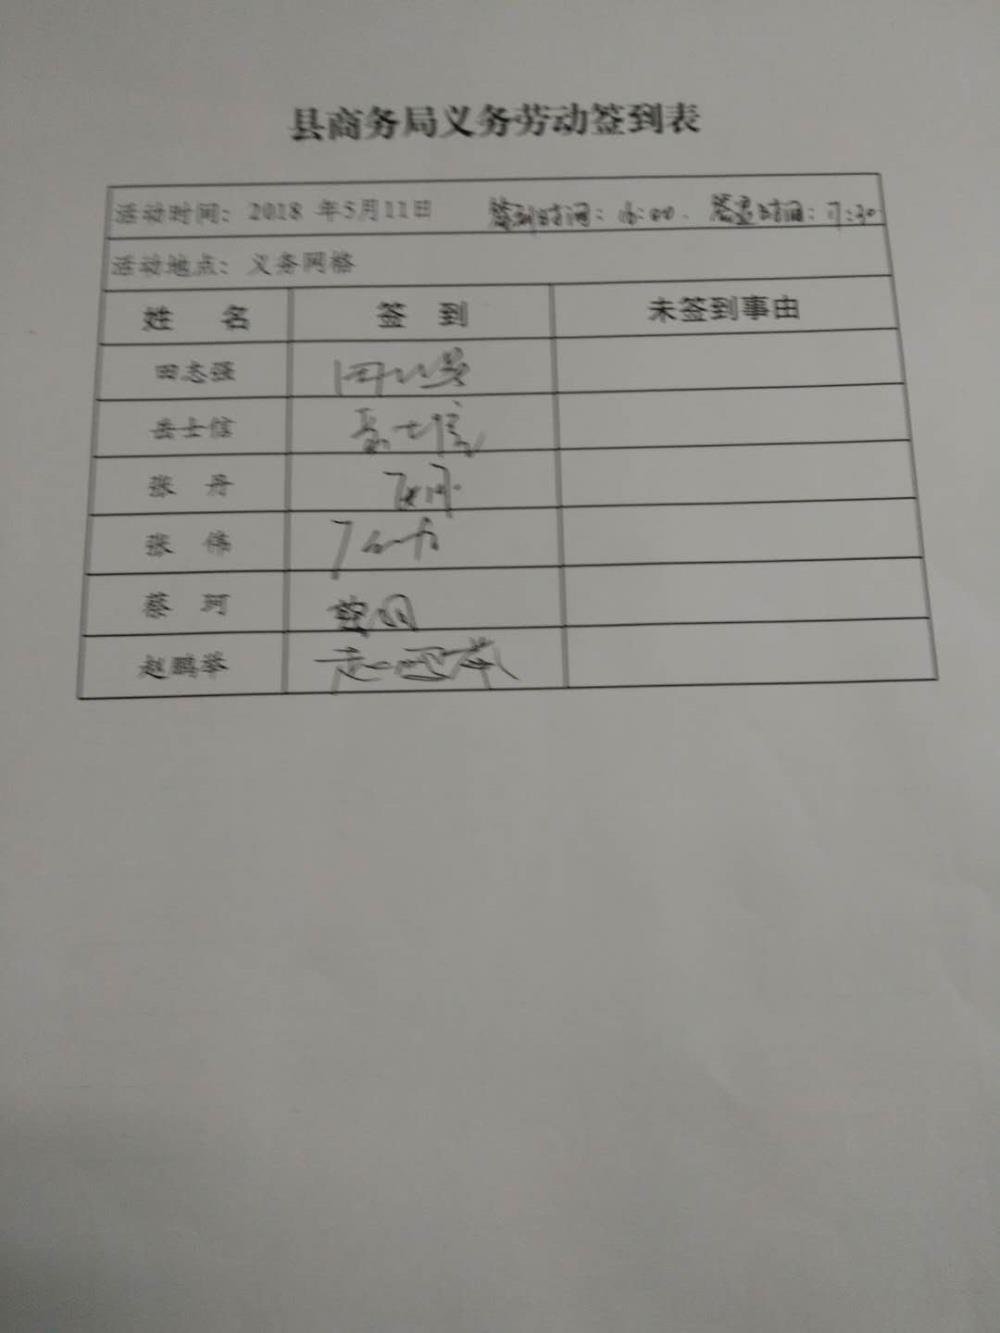 县商务局义务劳动签到表
活动时间：2018 年5月11日 签到时间：16:00. 签退时间：17:30
活动地点：义务网格
姓 名 签 到 未签到事由
田志强 田志强
岳士信 岳士信
张 丹 张丹
张 伟 张伟
蔡 珂 蔡珂
赵鹏举 赵鹏举